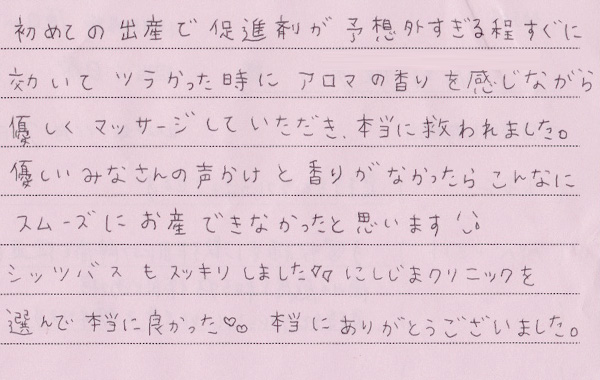 初めての出産で促進剤が予想外すぎる程すぐに
効いてツラかった時にアロマの香りを感じながら
優しくマッサージしていただき、本当に救われました。
優しいみなさんの声かけと香りがなかったらこんなに
スムーズにお産できなかったと思います
シッツバスもスッキリしました♡♡にしじまクリニックを
選んで本当に良かった♡♡ 本当にありがとうございました。